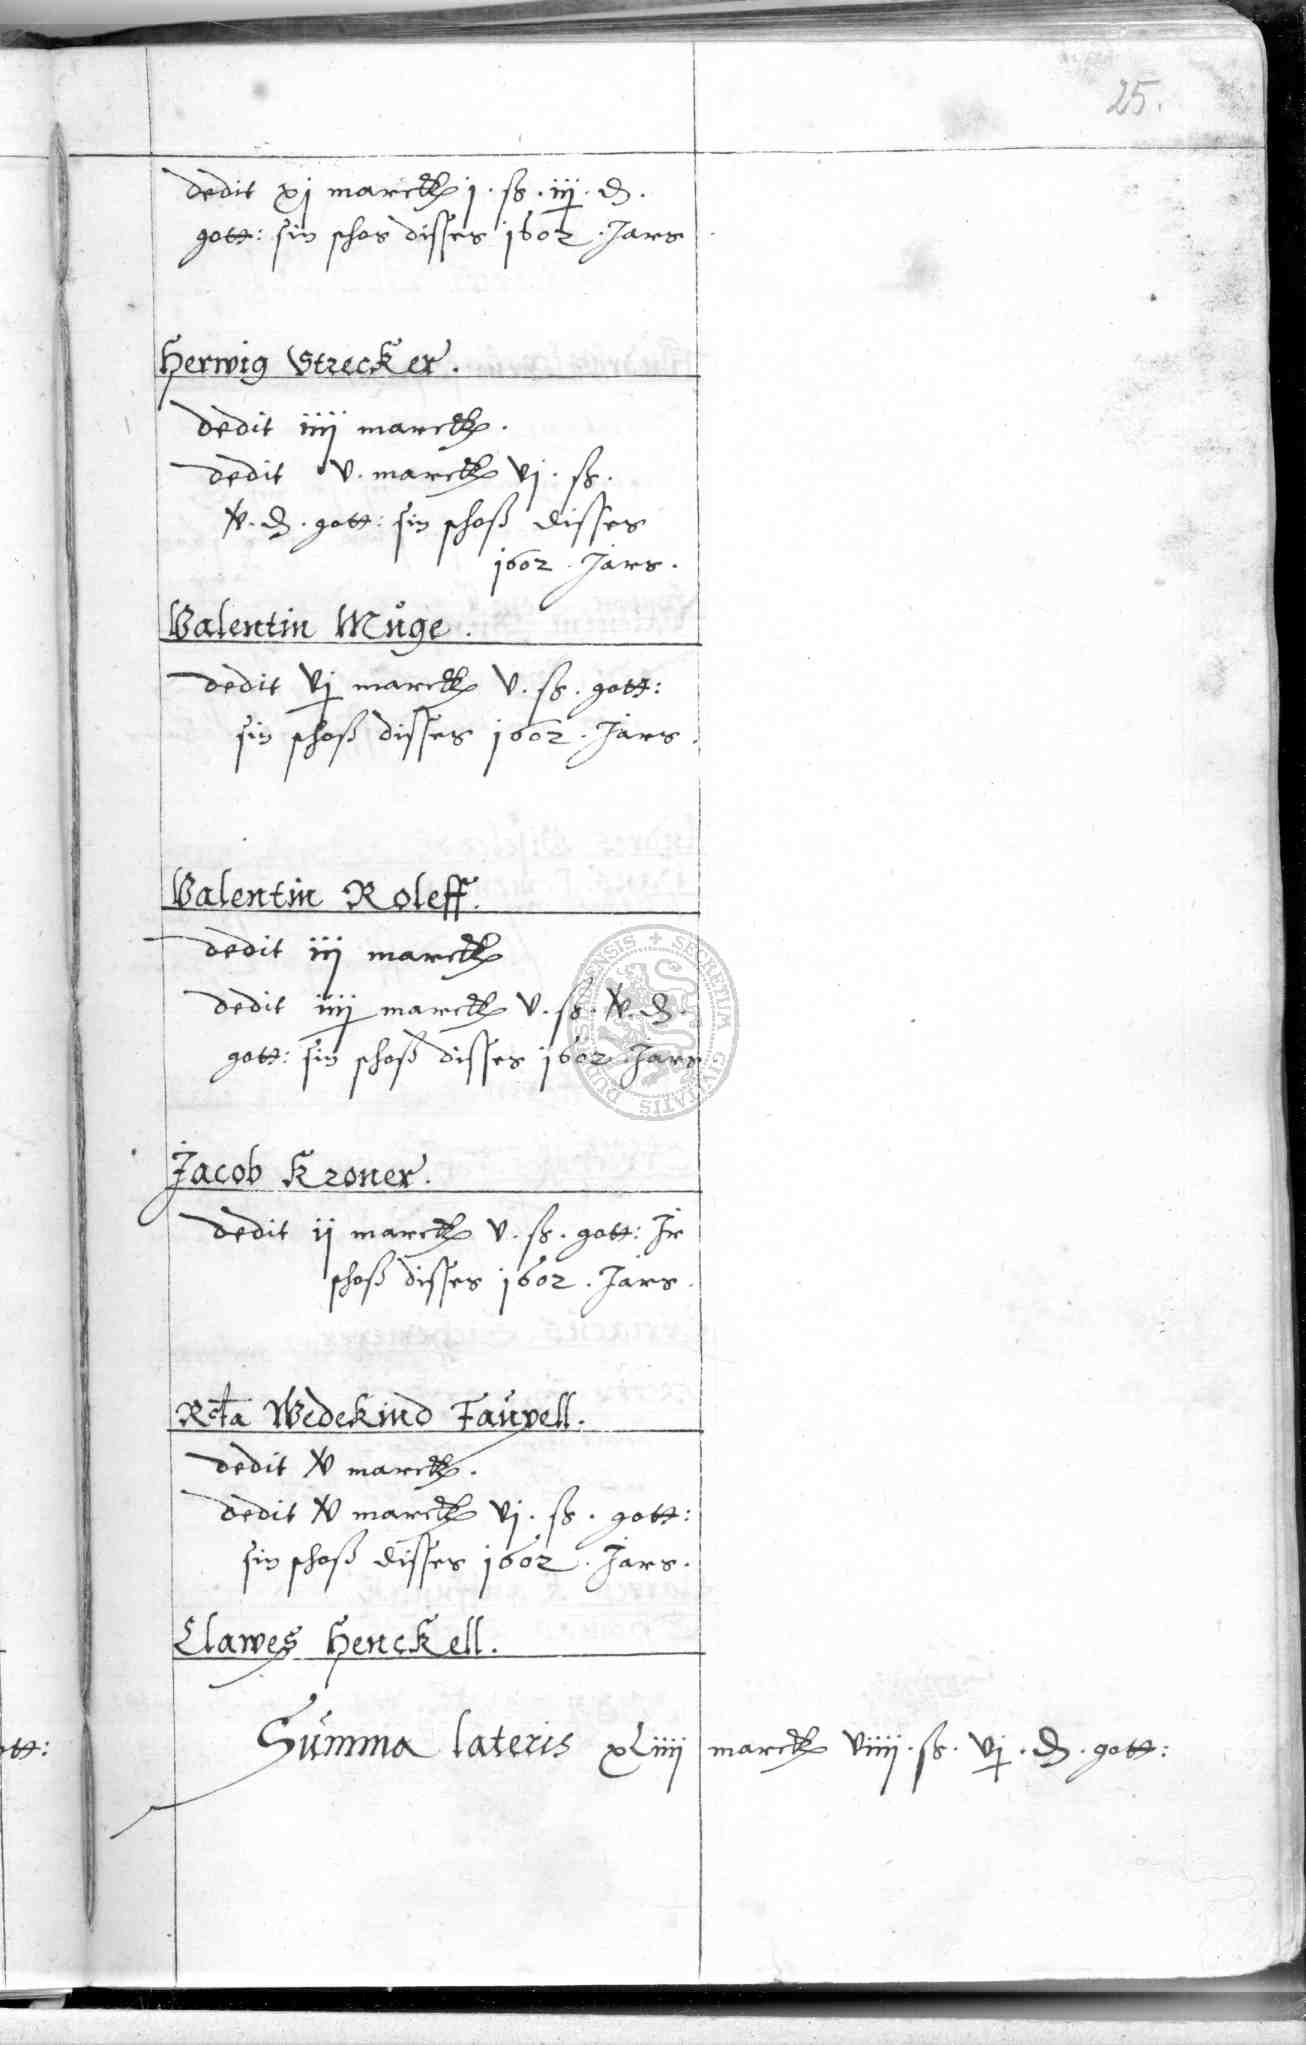 25.
dedit xj marck j. ß. iij. ₰.
gott: sin schos disses 1602. Jars
Herwig Strecker.
dedit iiij marck.
dedit v. marck vj. ß.
xv. ₰. gott: sin schoß disses
1602. Jars.
Valentin Můge.
dedit vj marck v. ß. gott:
sin schoß disses 1602. Jars.
Valentin Roleff.
dedit iij marck
dedit iiij marck v. ß. xv. ₰.
gott: sin schoß disses 1602 Jars
Jacob Kroner.
dedit ij marck v. ß. gott: Jr
schoß disses 1602. Jars.
Rcta Wedekind Faupell.
dedit xv marck.
dedit xv marck vj. ß. gott:
sin schoß disses 1602. Jars.
Clawes Henckell.
Summa lateris xLiiij marck viiij. ß. vj. ₰. gott:
ott:
SECRETUM CIVITATIS DUDERSTADENSIS